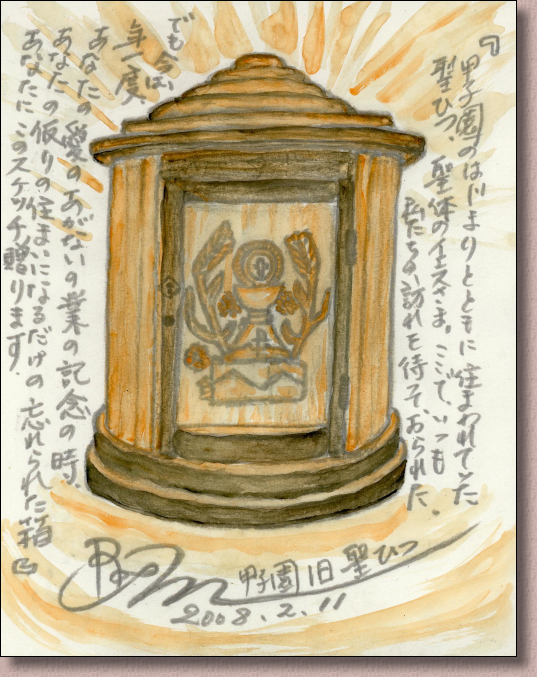 『甲子園のはじまりとともに住まわれていた
聖ひつ、聖体のイエスさま。ここで、いつも
私たちの訪れを待っておられた。
でも今は、
年一度、
あなたの愛のあがないの業の記念の時、
あなたの仮りの住まいになるだけの忘れられた箱
あなたにこのスケッチ贈ります。』
甲子園 旧 聖ひつ
2008.2.11